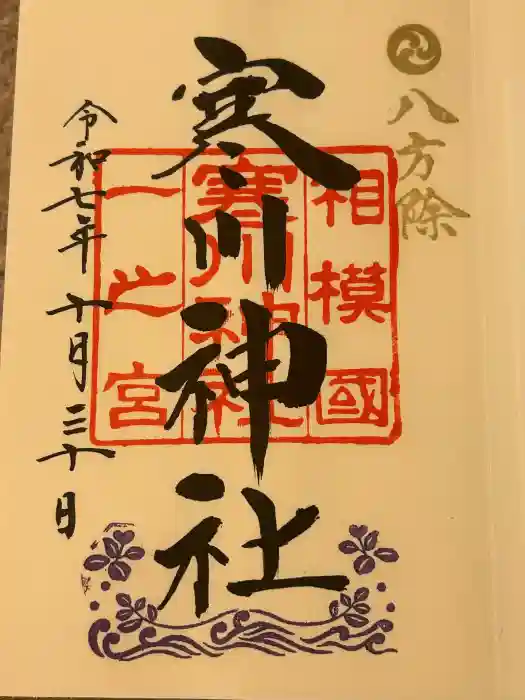 八方除
相模國
寒川神社
一之宮
寒川神社
令和七年十月三十日